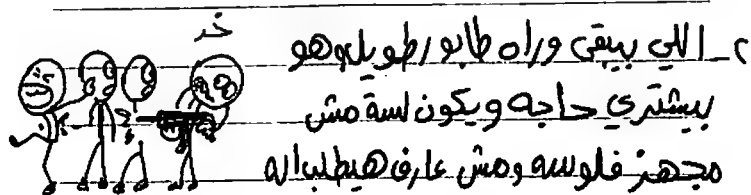 خد
٢_ اللي بيبقى وراه طابور طويل وهو
بيشتري حاجه ويكون لسة مش
مجهز فلوسه ومش عارف هيطلب اله